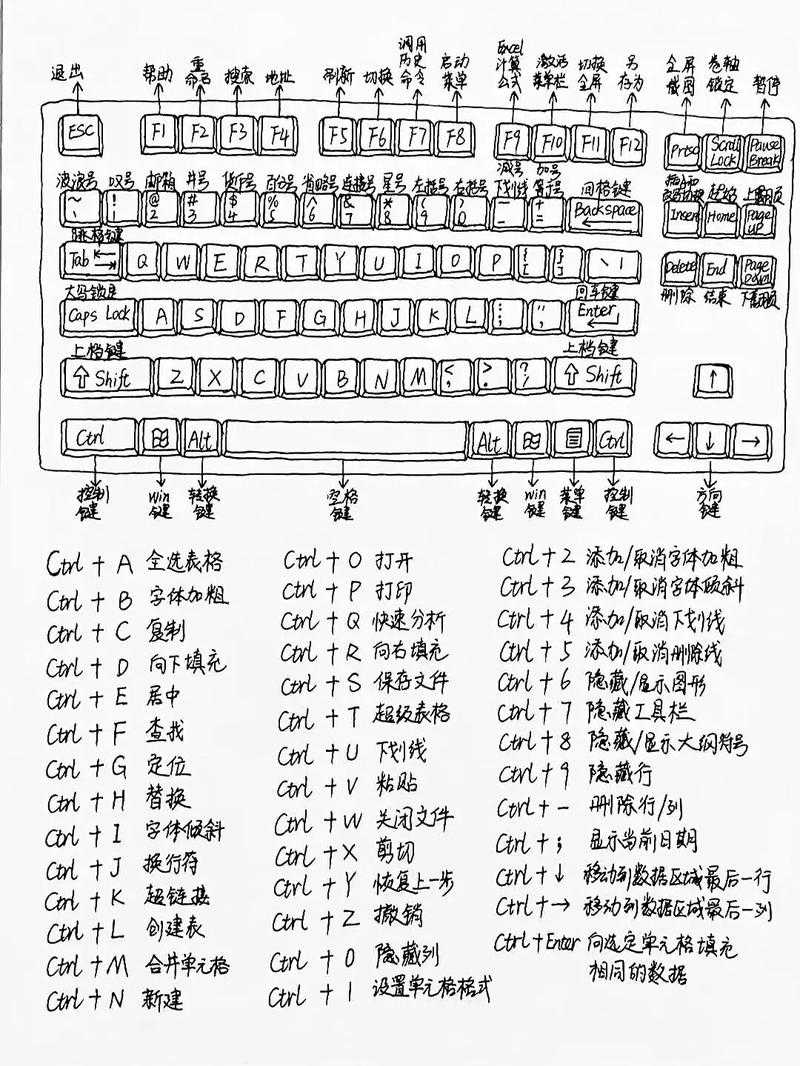 退出 帮助 重命名 搜索 地址 刷新 切换 调用历史命令 启动菜单 Excel计算公式 激活菜单栏 切换全屏 另存为 全屏截图 卷轴锁定 暂停
ESC F1 F2 F3 F4 F5 F6 F7 F8 F9 F10 F11 F12 Prtsc Scroll Lock Pause Break
波浪号 叹号 邮箱 井号 货币号 百分号 省略号 连接号 星号 左括号 右括号 减号下划线 加号等号 回格键
~ ` ! 1 @ 2 # 3 $ 4 % 5 ^ 6 & 7 * 8 ( 9 ) 0 _ - + = Backspace Insert Home Page UP
跳格键
Tab Q W E R T Y U I O P { [ } ] \ | Delete End Page Down
大写锁定 回车键 删除 结束 下翻页
Caps Lock A S D F G H J K L : ; " ' Enter
上档键 上档键
⇧ Shift Z X C V B N M < , > . ? / ⇧ Shift ↑
Ctrl Alt Alt Ctrl ← ↓ →
控制键 win键 转换键 空格键 转换键 win键 菜单键 控制键 方向键
Ctrl + A 全选表格
Ctrl + B 字体加粗
Ctrl + C 复制
Ctrl + D 向下填充
Ctrl + E 居中
Ctrl + F 查找
Ctrl + G 定位
Ctrl + H 替换
Ctrl + I 字体倾斜
Ctrl + J 换行符
Ctrl + K 超链接
Ctrl + L 创建表
Ctrl + M 合并单元格
Ctrl + N 新建
Ctrl + O 打开
Ctrl + P 打印
Ctrl + Q 快速分析
Ctrl + R 向右填充
Ctrl + S 保存文件
Ctrl + T 超级表格
Ctrl + U 下划线
Ctrl + V 粘贴
Ctrl + W 关闭文件
Ctrl + X 剪切
Ctrl + Y 恢复上一步
Ctrl + Z 撤销
Ctrl + 0 隐藏列
Ctrl + 1 设置单元格格式
Ctrl + 2 添加/取消字体加粗
Ctrl + 3 添加/取消字体倾斜
Ctrl + 4 添加/取消下划线
Ctrl + 5 添加/取消删除线
Ctrl + 6 隐藏/显示图形
Ctrl + 7 隐藏工具栏
Ctrl + 8 隐藏/显示大纲符号
Ctrl + 9 隐藏行
Ctrl + - 删除行/列
Ctrl + ; 显示当前日期
Ctrl + ↓ 移动到数据区域最后一行
Ctrl + → 移动到数据区域最后一列
Ctrl + Enter 向选定单元格填充
相同的数据